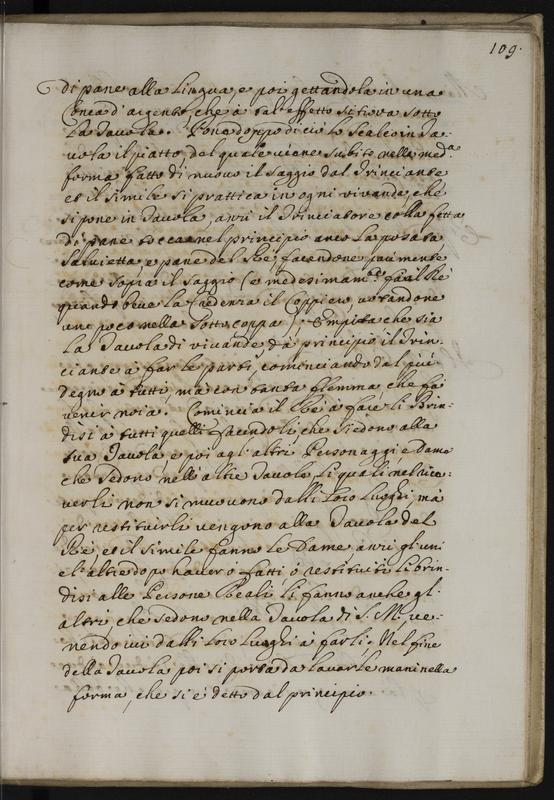 109.
di pane alla Lingua, e poi gettandola in una
Conca d'argento, che à tal'effetto si trova sotto
La Tavola. Pone doppo di ciò lo Scalco in Ta-
vola il piatto, dal quale viene subito nella med.ª
forma fatto di nuovo il saggio dal Trinciante
et il simile si prattica in ogni vivanda, che
si pone in Tavola, anzi il Trinciatore colla fetta
di pane tocca nel principio anco La posata
Salvietta, e pane del Rè, facendone parimente
come sopra il saggio (e medesimam.te fà il Rè
quando beve la Credenza il Coppiere, votandone
un poco nella sottocoppa); Empita che sia
La Tavola di vivande, dà principio il Trin-
ciante à far le parti, cominciando dal più
degno à tutti, mà con tanta flemma, che fà
venir noia. Comincia il Rè à fare li Brin-
disi à tutti quelli facendoli, che siedono alla
sua Tavola, e poi agl'altri Personaggi, e Dame
che sedono nell'altre Tavole, Li quali nel rice-
verli non si muovono dalli loro Luoghi, mà
per restituirli vengono alla Tavola del
Rè, et il simile fanno le Dame, anzi gl'uni
e l'altre dopo haver ò fatti ò restituiti li brin-
disi alle Persone Reali li fanno anche gl'
altri che sedono nella Tavola di S. M., ve-
nendo ivi dalli loro Luoghi à farli. Nel fine
della Tavola poi si porta da lavarle mani nella
forma, che si è detto dal principio.